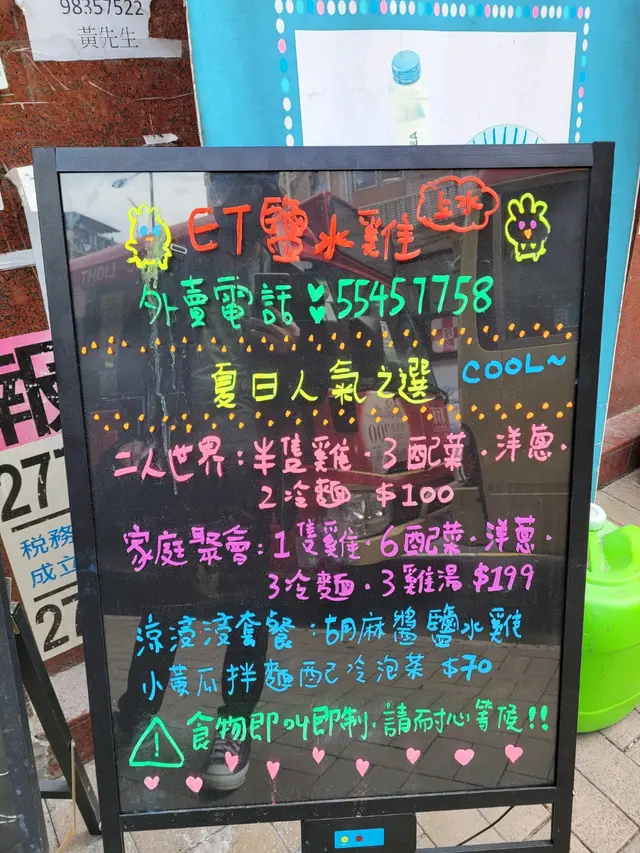 98357522
黃先生
ET鹽水雞 上水
外賣電話 55457758
夏日人氣之選 COOL~
二人世界：半隻雞．3配菜．洋蔥．
2冷麵 $100
家庭聚會：1隻雞．6配菜．洋蔥．
3冷麵．3雞湯 $199
涼浸浸套餐：胡麻醬鹽水雞
小黃瓜拌麵配冷泡菜 $70
食物即叫即制．請耐心等候!!
報
277
稅務
成立
27
LIGHT